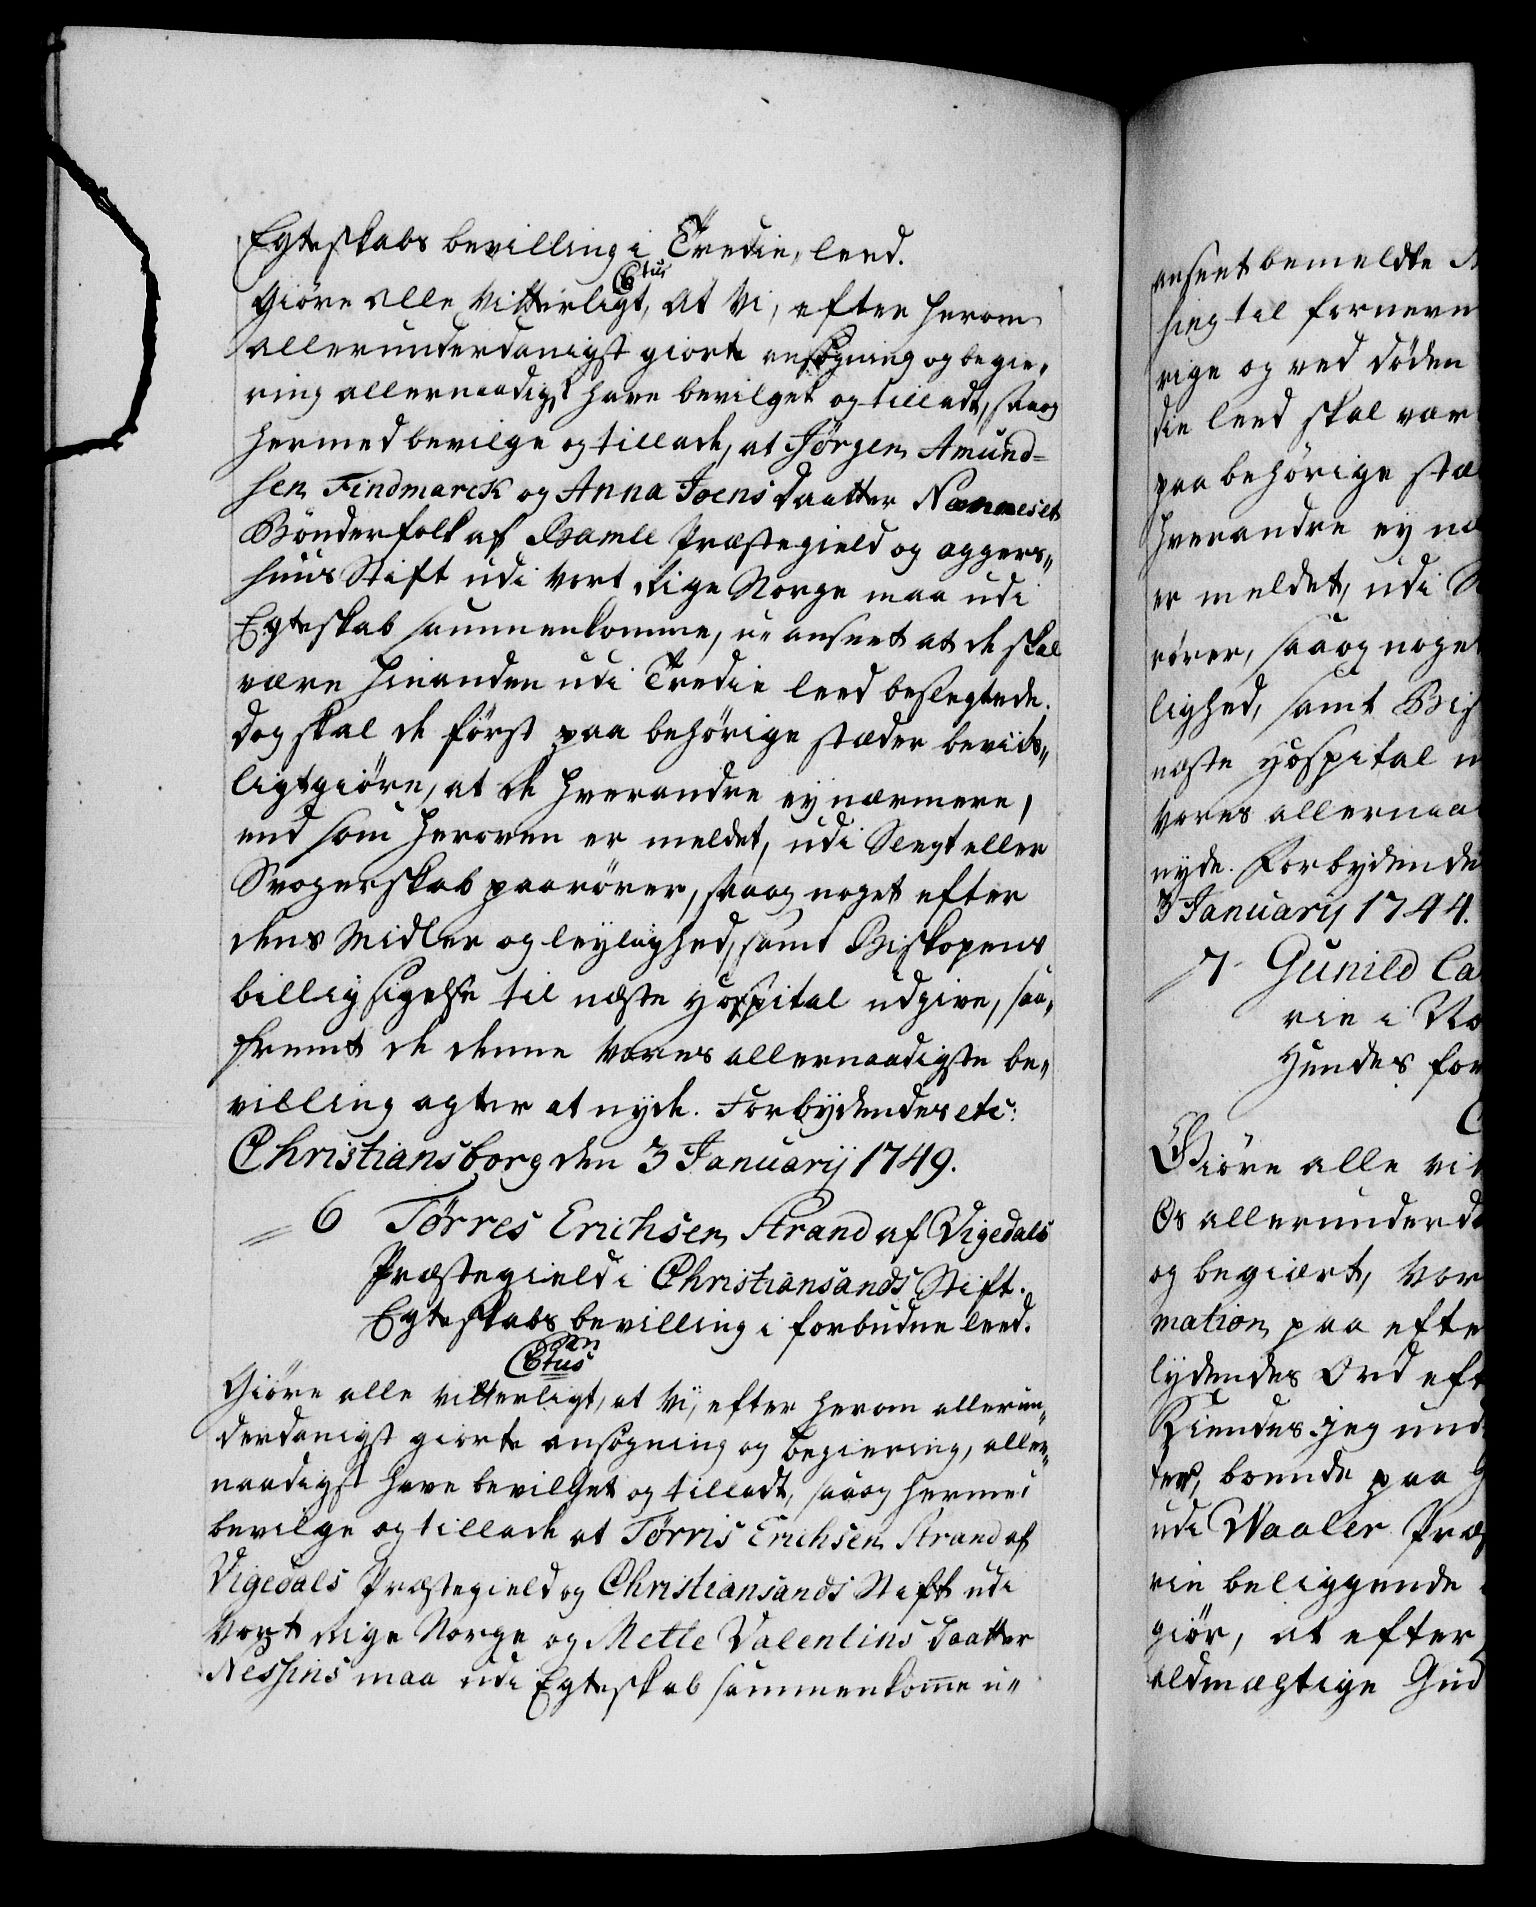 Egteskabs bevilling i Tredie leed.
Ctus
Giöre alle Vitterligt, At Vi, efter herom
allerunderdanigst giorte ansögning og begie„
ring allernaadigst have bevilget og tilladt, saa og
hermed bevilge og tillade, at Jörgen Amund=
sen Findmarck og Anna Joens daatter
Bönderfolk af Bamle Præstegield og Aggers„
huus Stift udi Vort Rige Norge maa udi
Egteskab sammenkomme, u-anseet at de skal
være hinanden udi Tredie leed beslegtede.
dog skal de först paa behörige stæder beviis„
ligtgiöre, at de hverandre ey nærmere,
end som heroven er meldet, udi Slegt eller
Svogerskab paarörer, saa og noget efter
deres Midler og leylighed, samt Biskopens
billigsigelse til næste Hospital udgive, saa„
fremt de denne Vores allernaadigste be„
villing agter at nyde. Forbydendes etc:
Christiansborg den 3 Januarij 1749.
6 Törres Erichsen Strand af Vigedals
Præstegield i Christiansands Stift.
Egteskabs bevilling i forbudne leed.
Ctus
Giöre alle vitterligt, at Vi, efter herom allerun„
derdanigst giorte ansögning og begiering, aller„
naadigst have bevilget og tilladt, saa og hermed
bevilge og tillade at Törris Erichsen Strand af
Vigedals Præstegield og Christiansands Stift udi
Vort Rige Norge og Mette Valentins daatter
Nessins maa udi Egteskab sammenkomme u„
anseet bemeldte
sing til fornevn
rige og ved döden
die leed skal vær
paa behörige stæ
hverandre ey næ
er meldet, udi S
rörer, saa og noget
lighed, samt Bis
næste Hospital
Vores allernaa
nyde. Forbydende
3 Januarij 1744.
7 Gunild Ca
rie i No
Hendes for
C
Giöre alle vit
Os allerunderda
og begiært, Vor
mation paa efte
lydendes Ord eft
Kiendes jeg und
ter, boende paa G
udi Waaler Præs
rie beliggende
giör, at efter
aldmægtige Gud